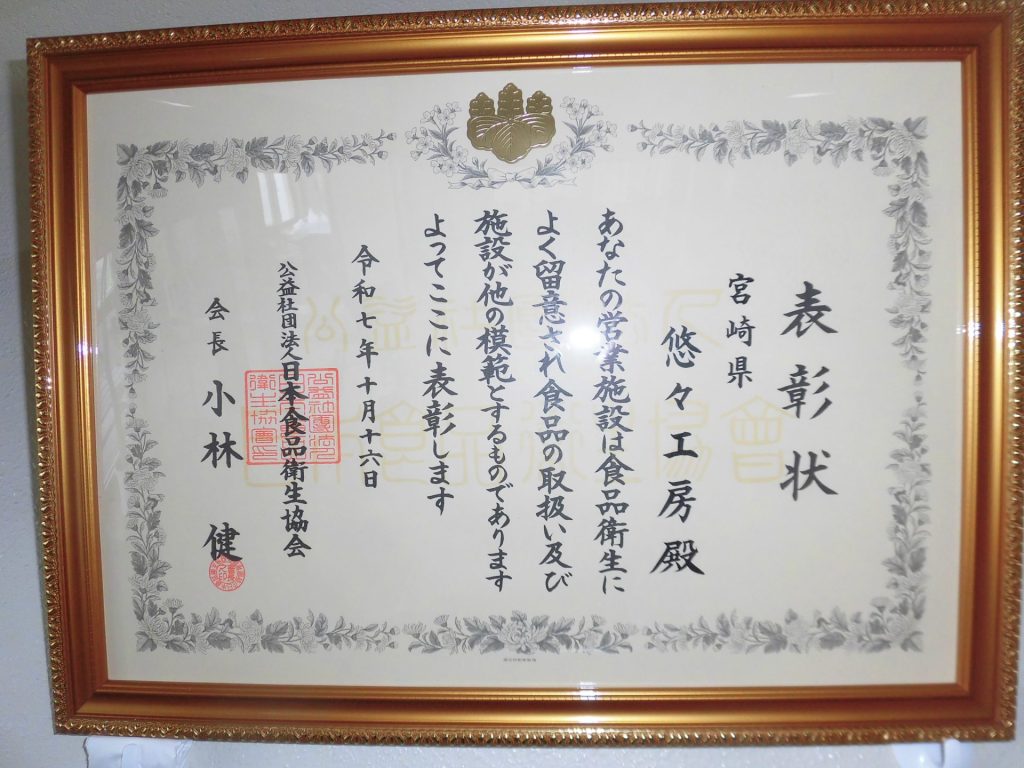 表彰状
宮崎県
悠々工房殿
あなたの営業施設は食品衛生に
よく留意され食品の取扱い及び
施設が他の模範とするものであります
よってここに表彰します
令和七年十月十六日
公益社団法人日本食品衛生協会
会長 小林 健